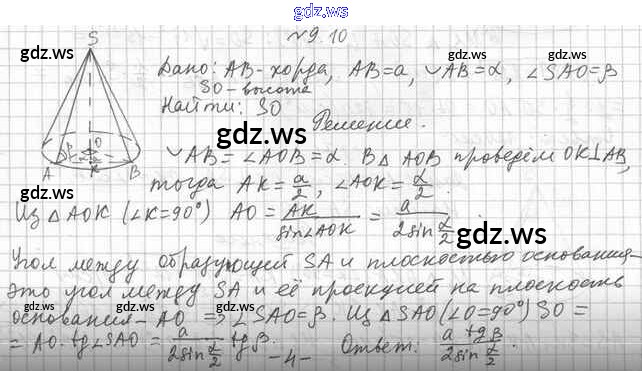 gdz.ws
№9.10
gdz.ws
gdz.ws
S
Дано: AB - хорда, AB=a, ◡AB=α, ∠SAO=β
SO - высота
Найти: SO
gdz.ws
Решение.
O
β
A K B
◡AB=∠AOB=α. В △AOB проведём OK⊥AB,
gdz.ws
тогда AK=a/2, ∠AOK=α/2.
Из △AOK (∠K=90°) AO = AK/sin∠AOK = a/(2sin α/2).
gdz.ws
Угол между образующей SA и плоскостью основания-
это угол между SA и её проекцией на плоскость
gdz.ws
gdz.ws
основания - AO ⇒ ∠SAO=β. Из △SAO (∠O=90°) SO =
= AO·tg∠SAO = a/(2sin α/2) tgβ. Ответ: a tgβ/(2sin α/2).
-4-
gdz.ws